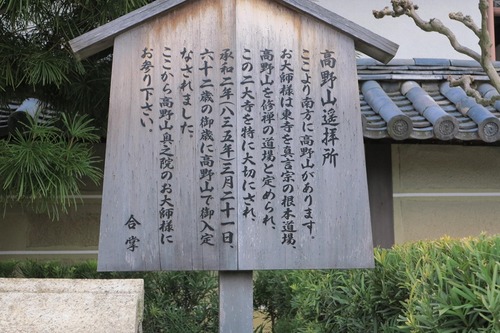 高野山遥拝所
ここより南方に高野山があります。
お大師様は東寺を真言宗の根本道場、
高野山を修禅の道場と定められ、
この二大寺を特に大切にされ、
承和二年(八三五年)三月二十一日、
六十二歳の御歳に高野山で御入定
なされました。
ここから高野山奥之院のお大師様に
お参り下さい。
合掌